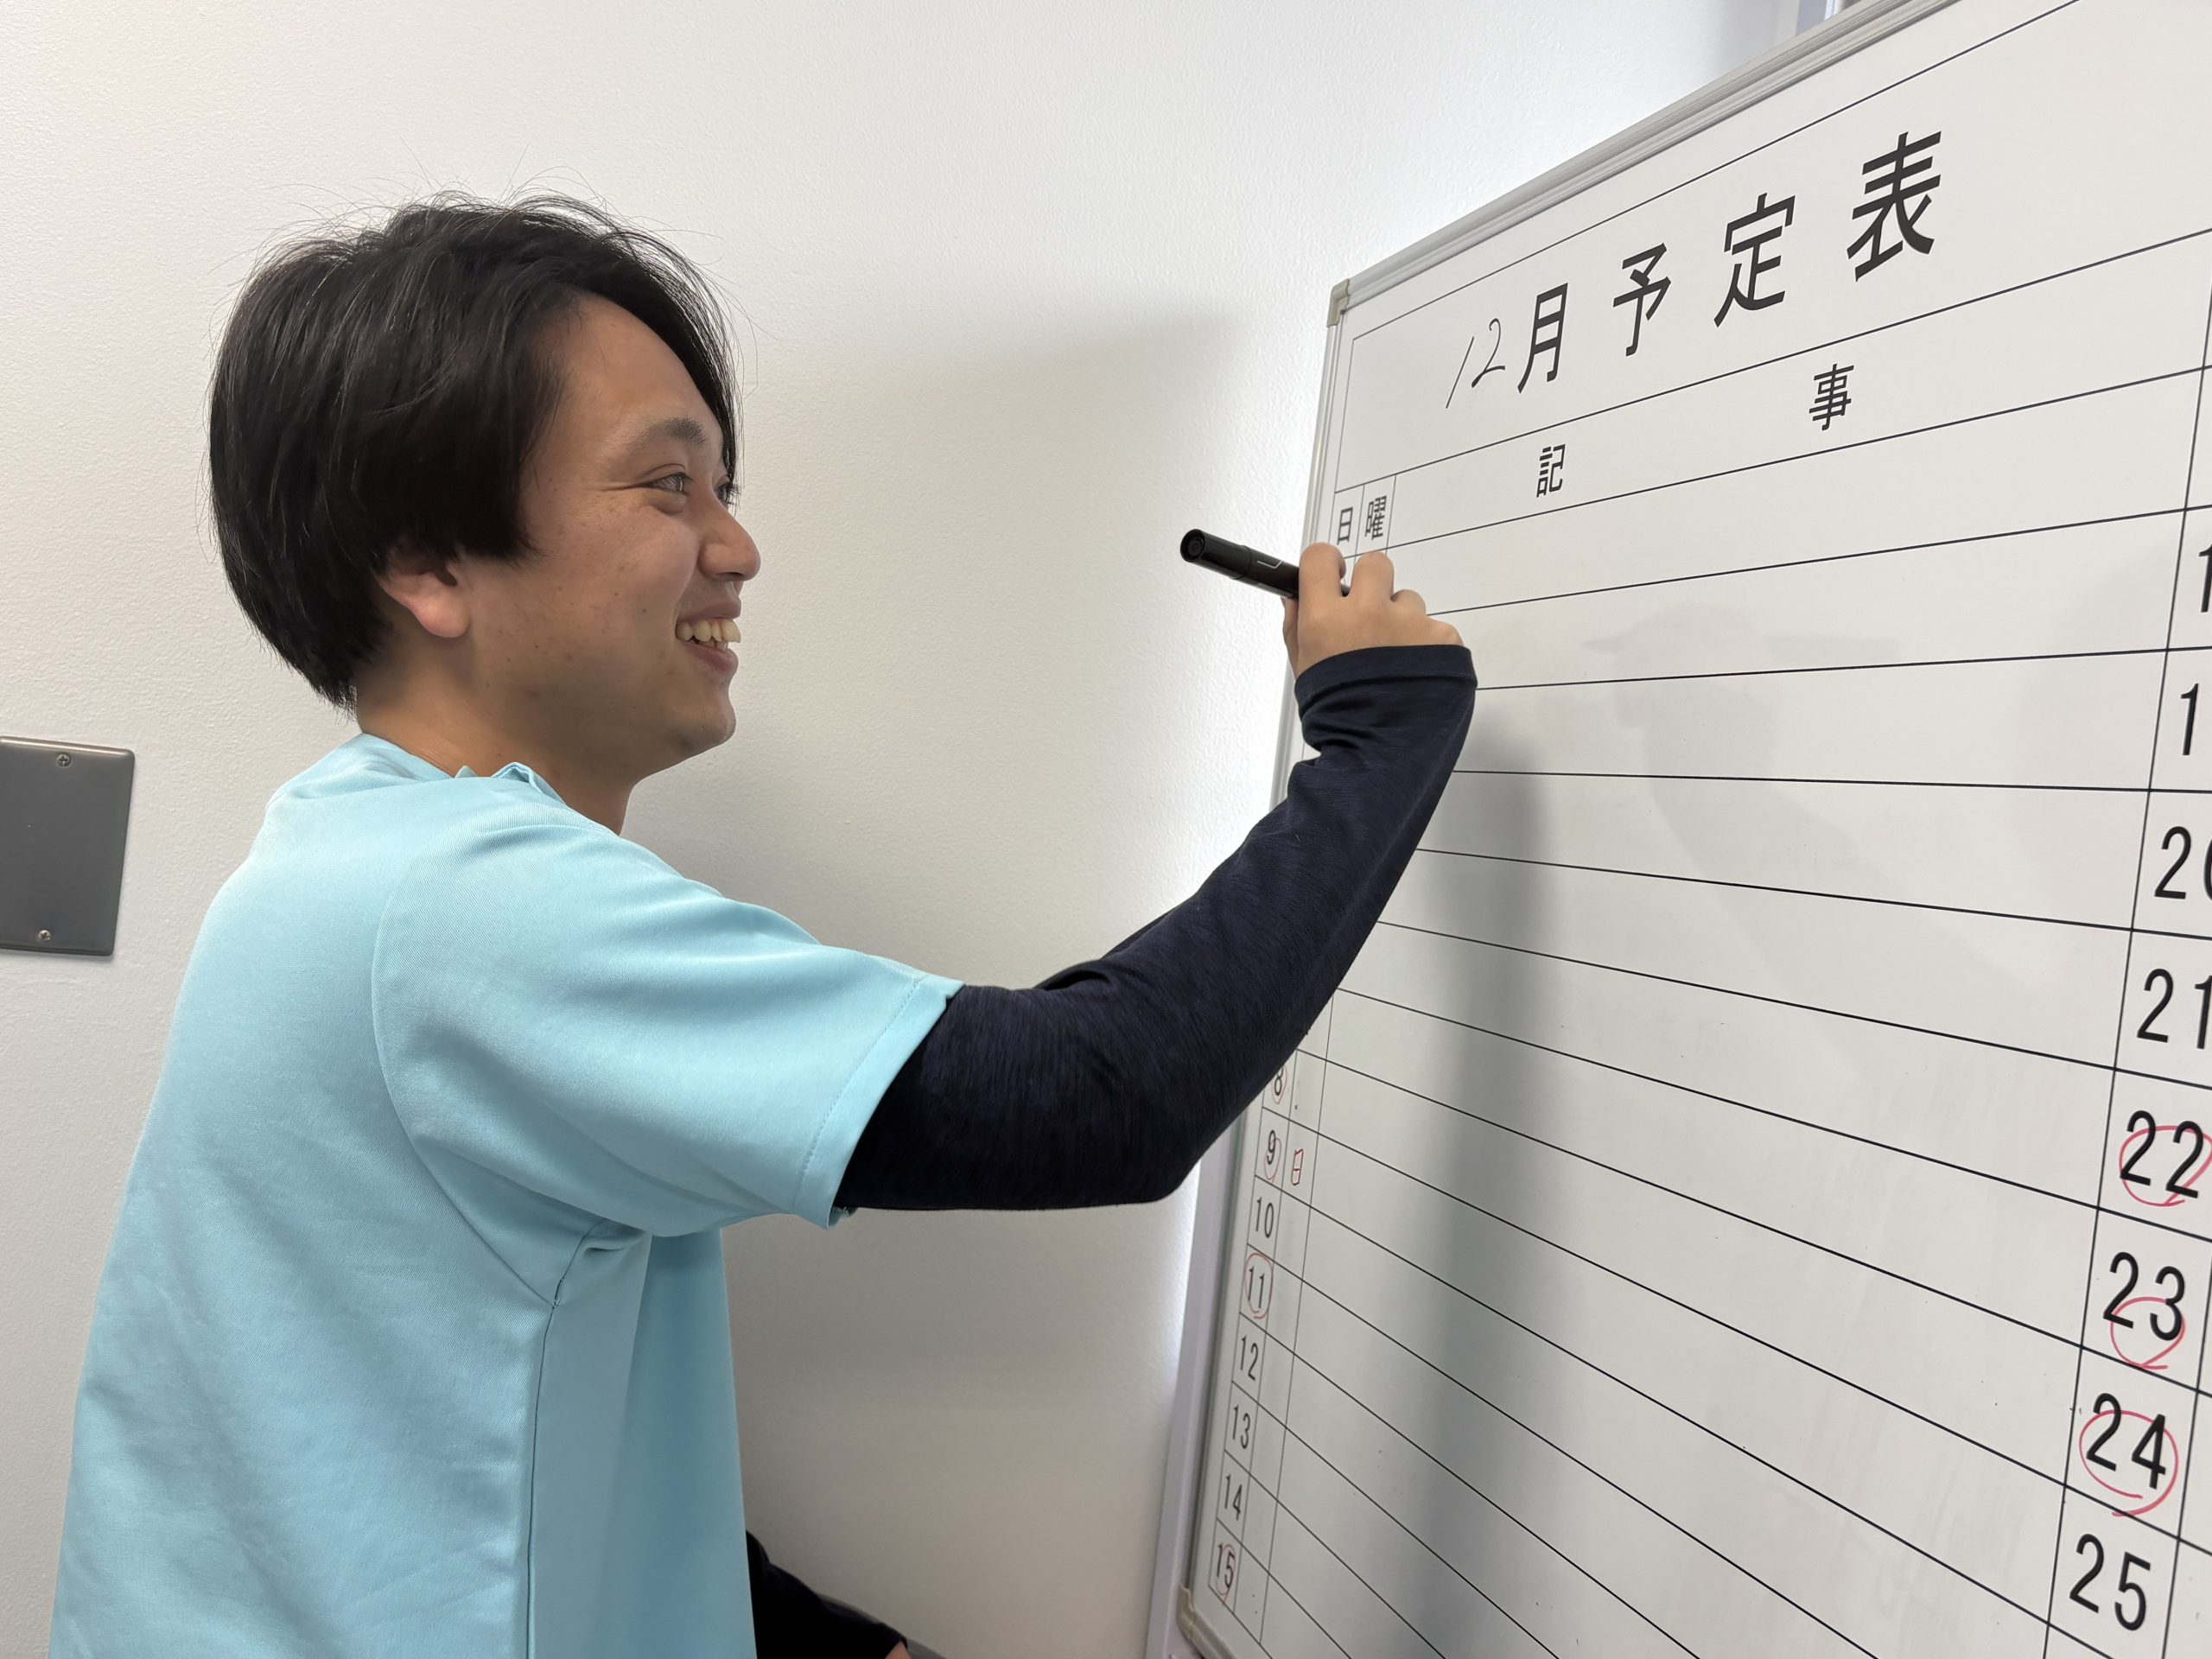 12月予定表
日 曜 記 事
8
9 日
10
11
12
13
14
15
21
22
23
24
25